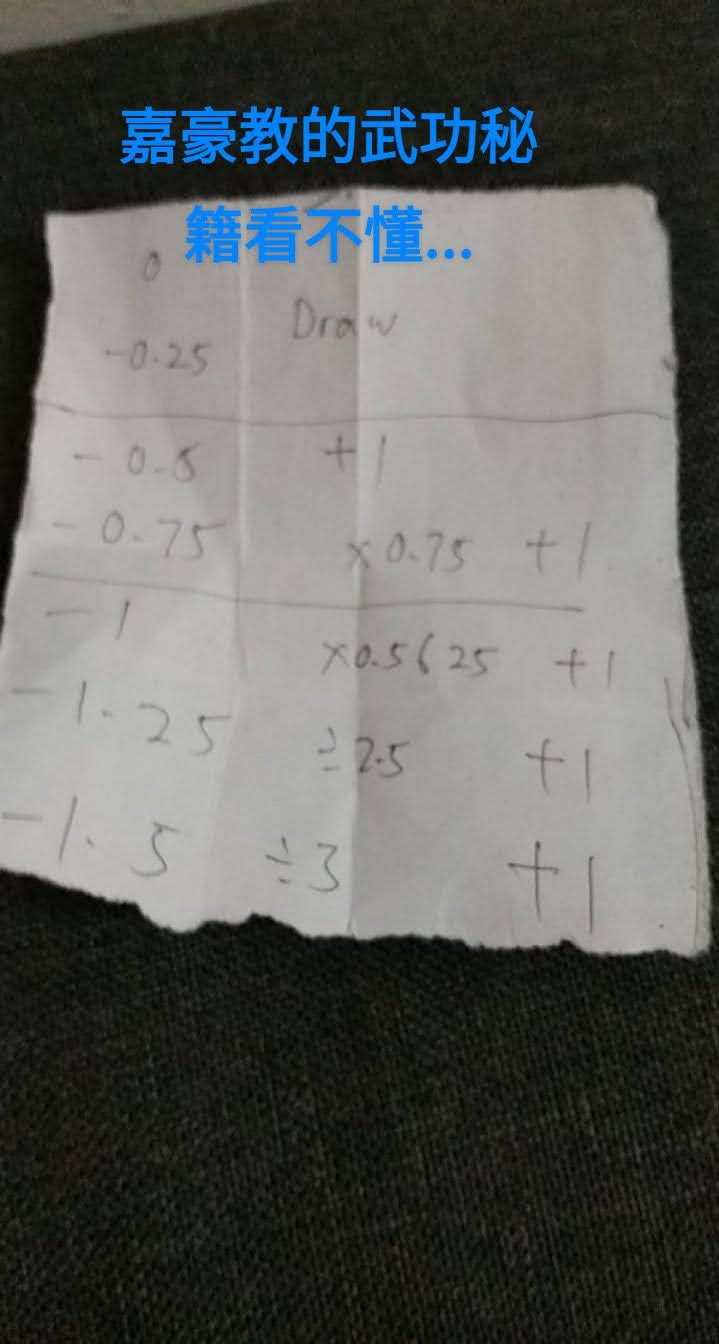 嘉豪教的武功秘
籍看不懂...
0
Draw
-0.25
-0.5 +1
-0.75 ×0.75 +1
-1 ×0.5625 +1
-1.25 ÷2.5 +1
-1.5 ÷3 +1